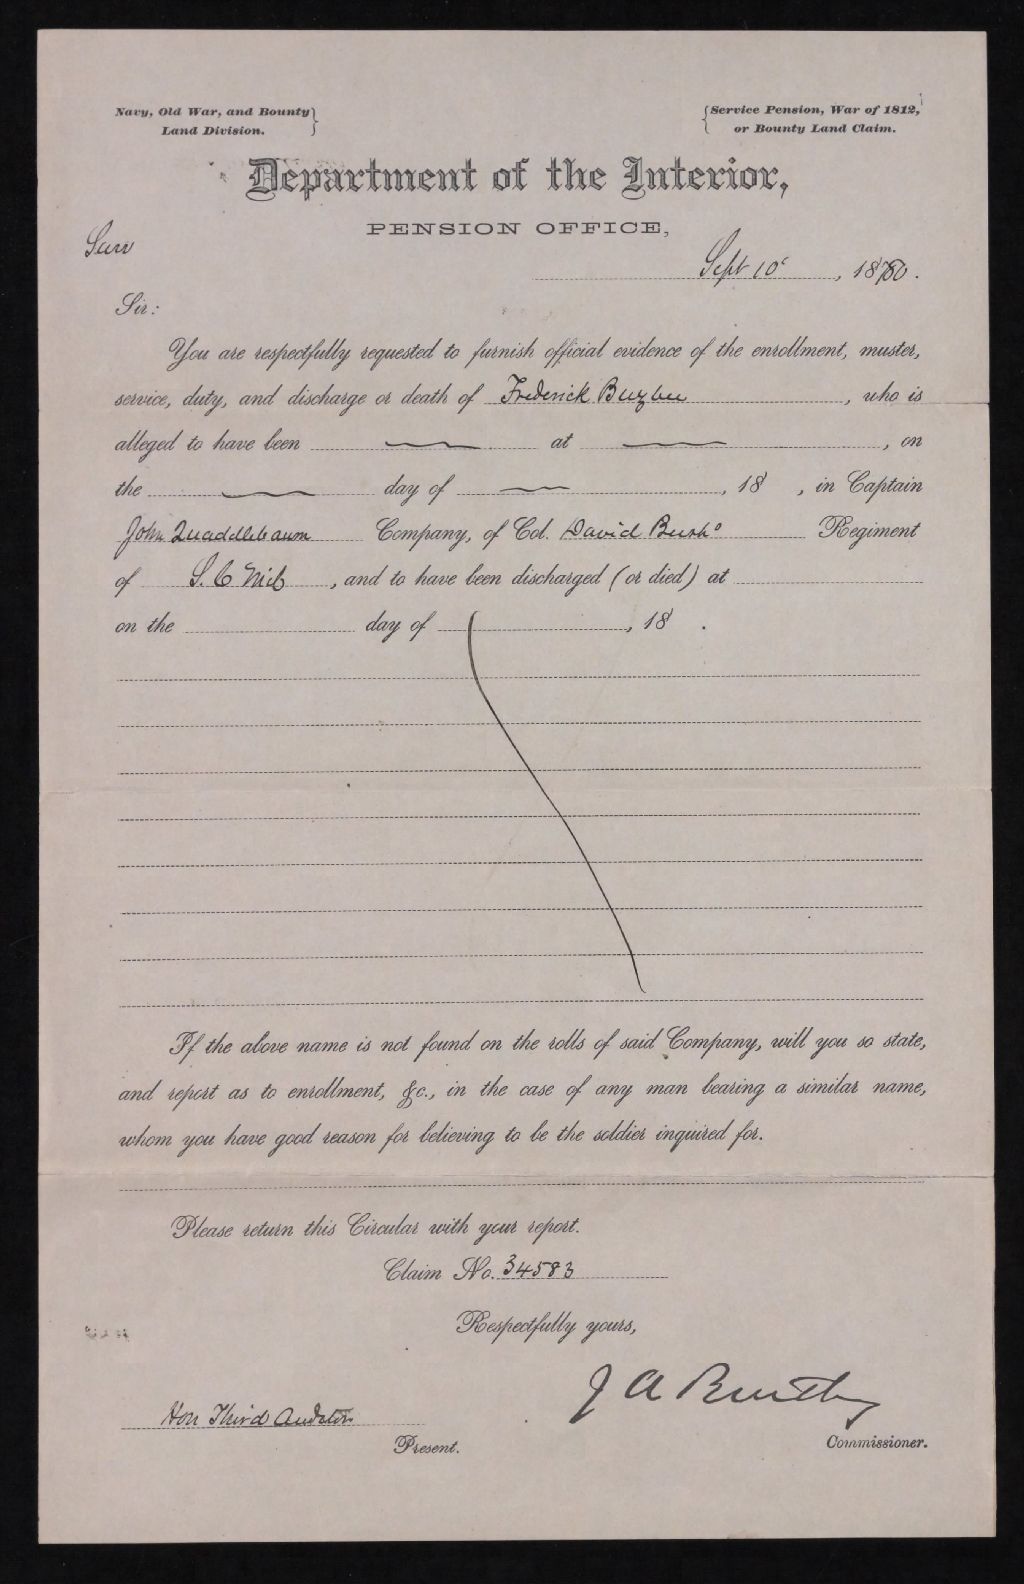 Navy, Old War, and Bounty
Land Division.
Service Pension, War of 1812,
or Bounty Land Claim.
Department of the Interior,
PENSION OFFICE,
Surv
Sept 10, 1880.
Sir:
You are respectfully requested to furnish official evidence of the enrollment, muster,
service, duty, and discharge or death of Frederick Buzbee, who is
alleged to have been at , on
the day of , 18 , in Captain
John Quaddlebaum Company, of Col. David Bush's Regiment
of S. C Mil, and to have been discharged (or died) at
on the day of , 18 .
If the above name is not found on the rolls of said Company, will you so state,
and report as to enrollment, &c., in the case of any man bearing a similar name,
whom you have good reason for believing to be the soldier inquired for.
Please return this Circular with your report.
Claim No. 34583
Respectfully yours,
J A Bentley
Hon Third Auditor
Present.
Commissioner.